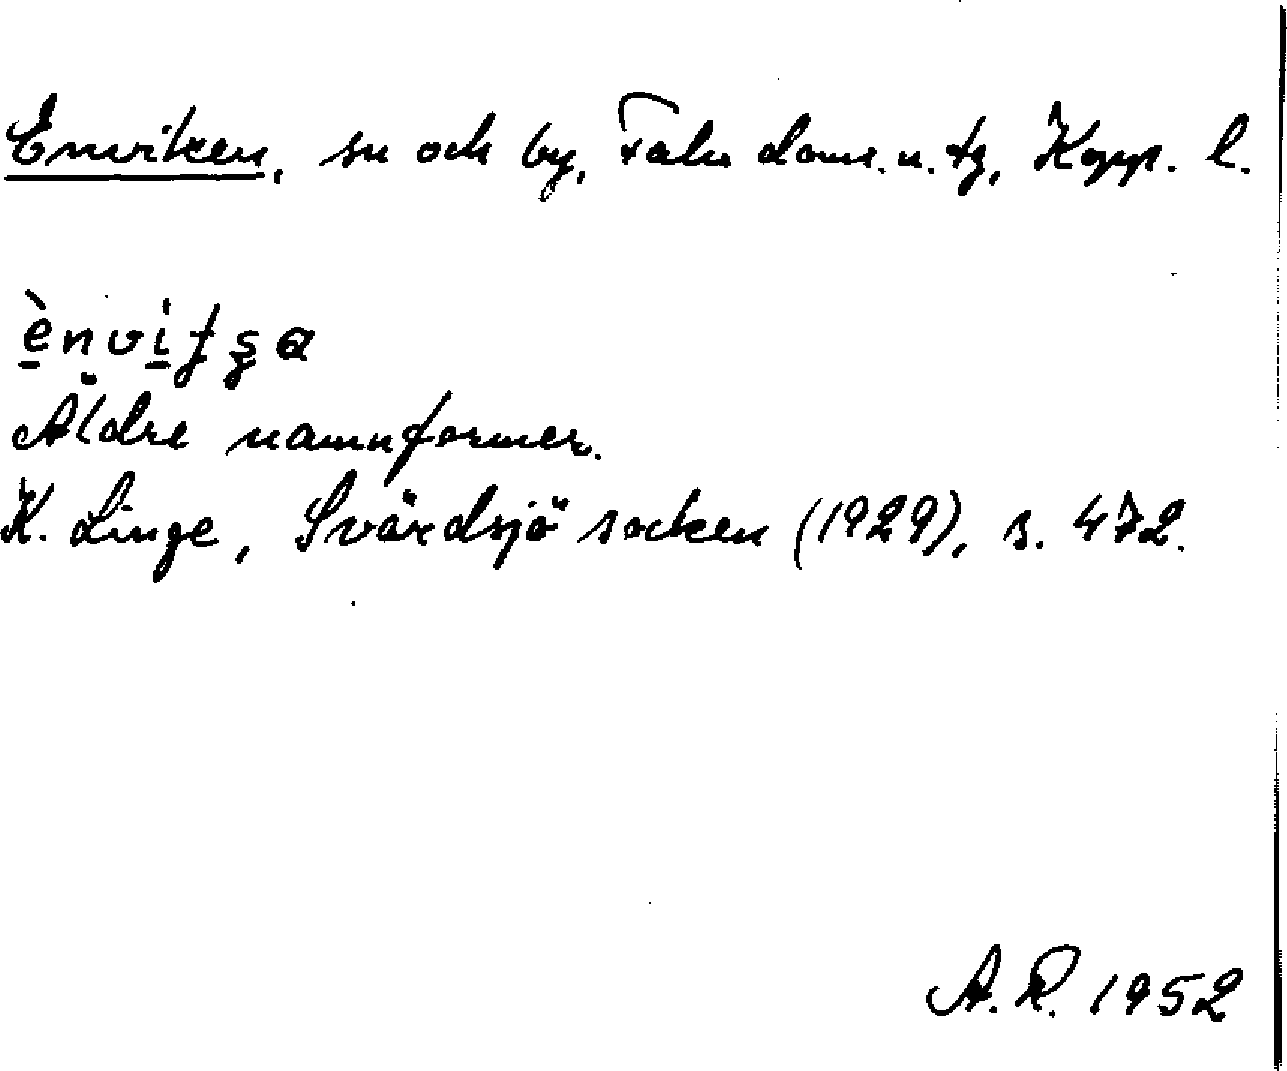 Enviken, sn och by, Falu doms. n. tg, Kopp. l.
Äldre namnformer.
K. Linge, Svärdsjö socken (1929), s. 472.
A. R. 1952